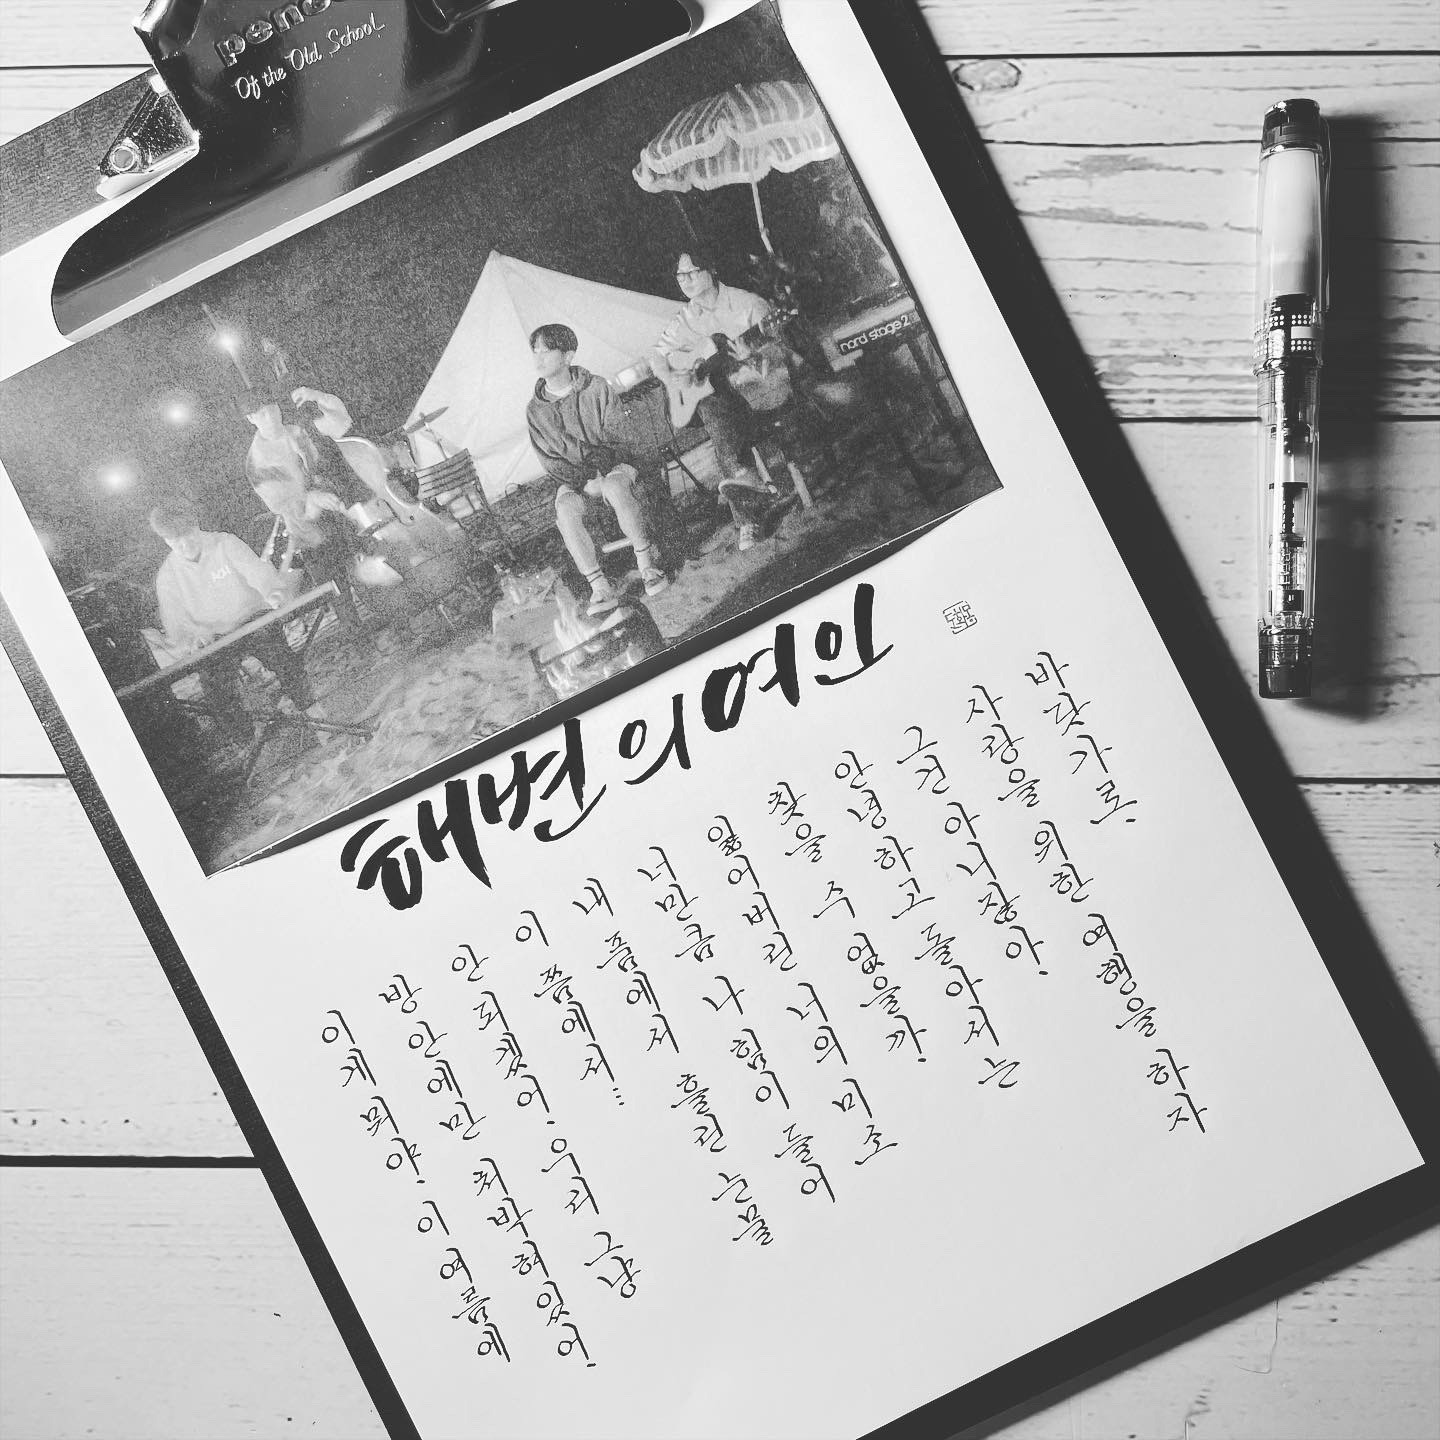 Of the Old School
nord stage 2
해변의 여인
이게 뭐야. 이 여름에
방 안에만 처박혀있어!
안 되겠어. 우리 그냥
이 쯤에서...
내 품에서 흘린 눈물
너만큼 나 힘이 들어
잃어버린 너의 미소
찾을 수 없을까.
안녕하고 돌아서는
그건 아니잖아.
사랑을 위한 여행을 하자
바닷가로.